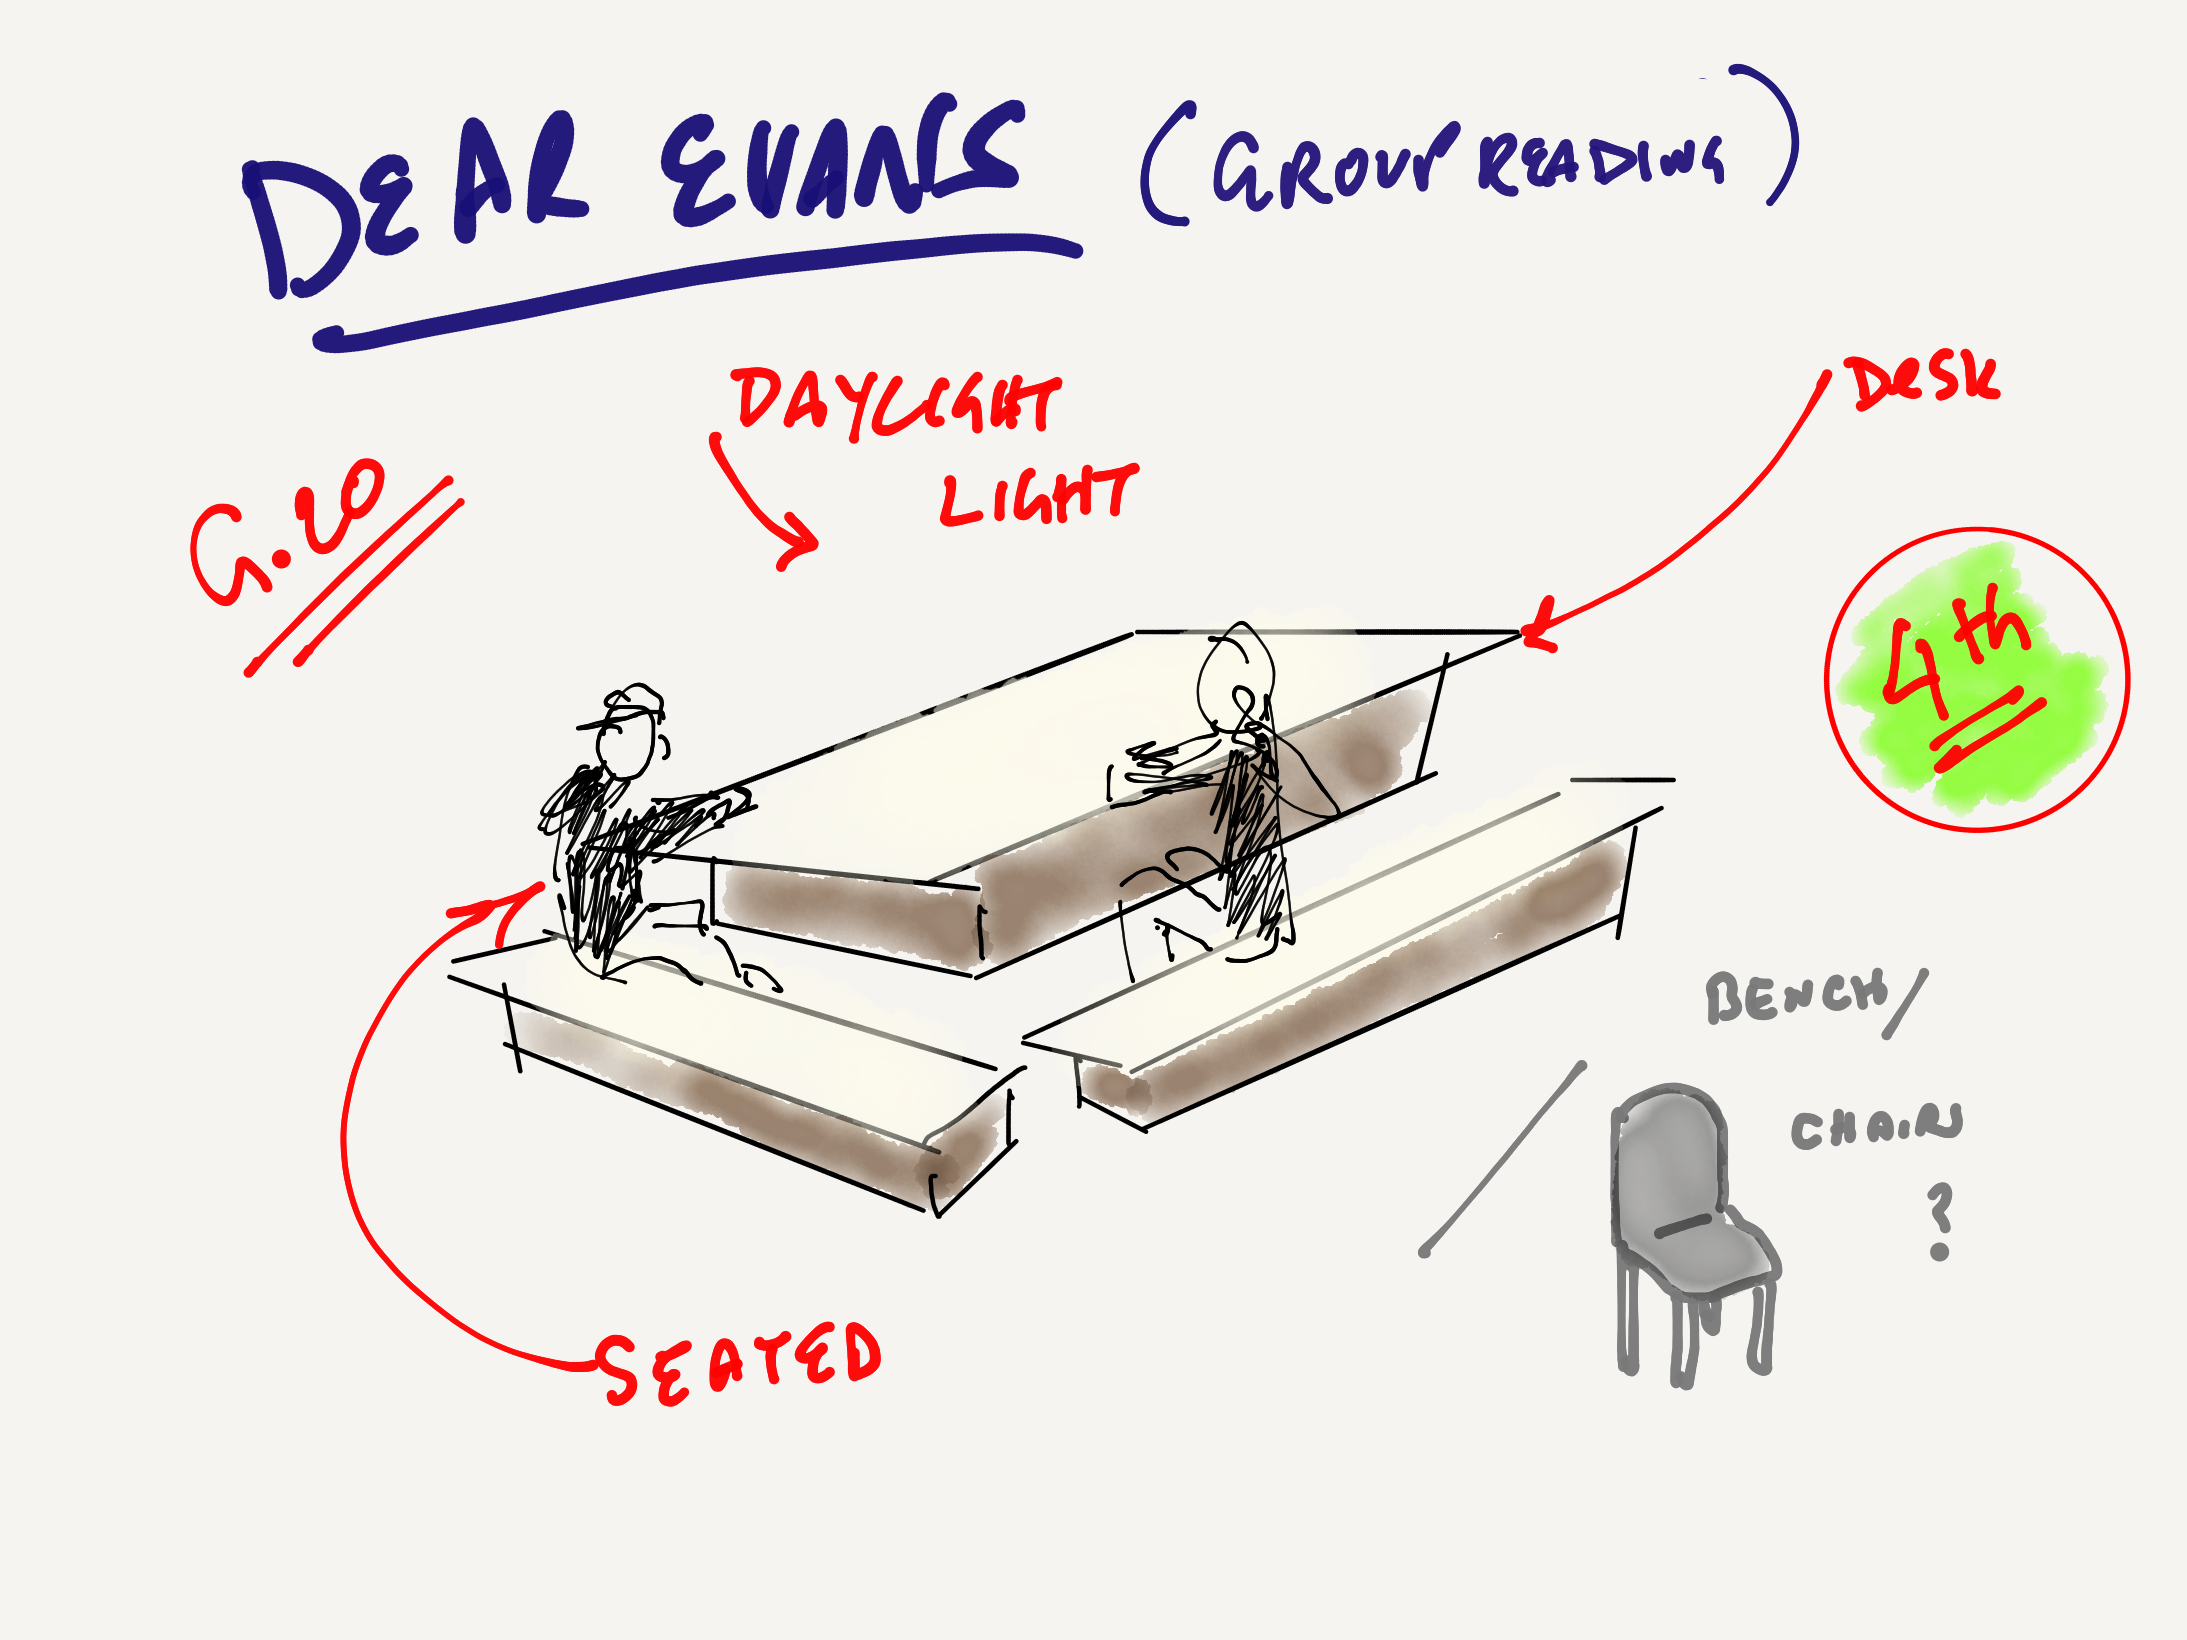 DEAR EVANS (GROUP READING)
DAYLIGHT
LIGHT
DESK
G.20
4th
BENCH/
CHAIR
?
SEATED